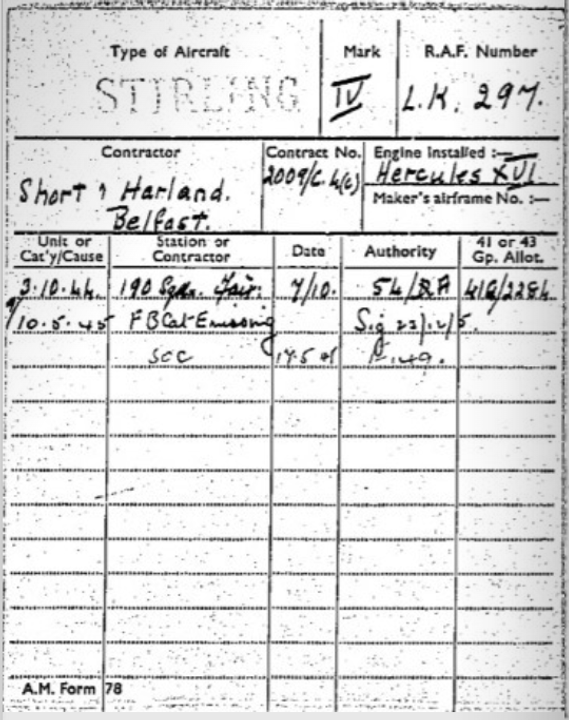 Type of Aircraft Mark R.A.F. Number
STIRLING IV L.K. 297.
Contractor Contract No. Engine Installed :—
Short & Harland. 2009/C.4(c) Hercules XVI
Belfast. Maker's airframe No. :—
Unit or Cat'y/Cause Station or Contractor Date Authority 41 or 43 Gp. Allot.
3.10.44. 190 Sqdn. Fair. 7/10. 54/ 41G/2284
10.5.45 FB Cat E missing Sig
SOC 17.5
A.M. Form 78